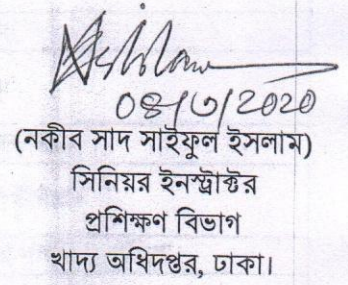 08/৩/2020
(নকীব সাদ সাইফুল ইসলাম)
সিনিয়র ইনস্ট্রাক্টর
প্রশিক্ষণ বিভাগ
খাদ্য অধিদপ্তর, ঢাকা।